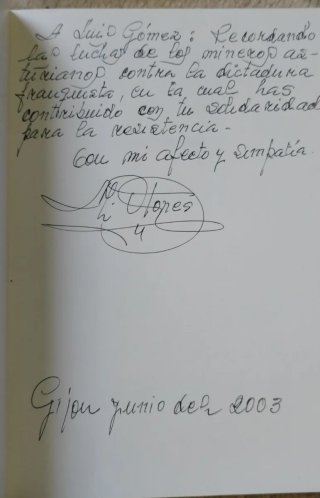 A Luis Gómez: Recordando
las luchas de los mineros as-
turianos contra la dictadura
franquista, en la cual has
contribuido con tu solidaridad
para la resistencia-
Con mi afecto y simpatía.
Gijon junio del 2003